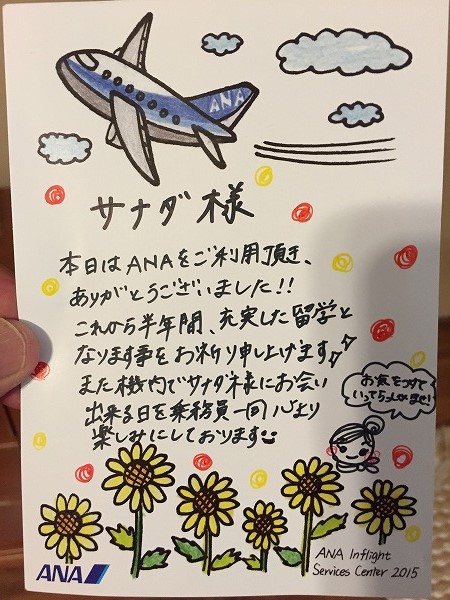 ANA
サナダ様
本日はANAをご利用頂き、
ありがとうございました!!
これから半年間、充実した留学と
なります事をお祈り申し上げます
また機内でサナダ様にお会い
出来る日を乗務員一同心より
楽しみにしております
お気をつけて
いってらっしゃいませ!
ANA
ANA Inflight
Services Center 2015